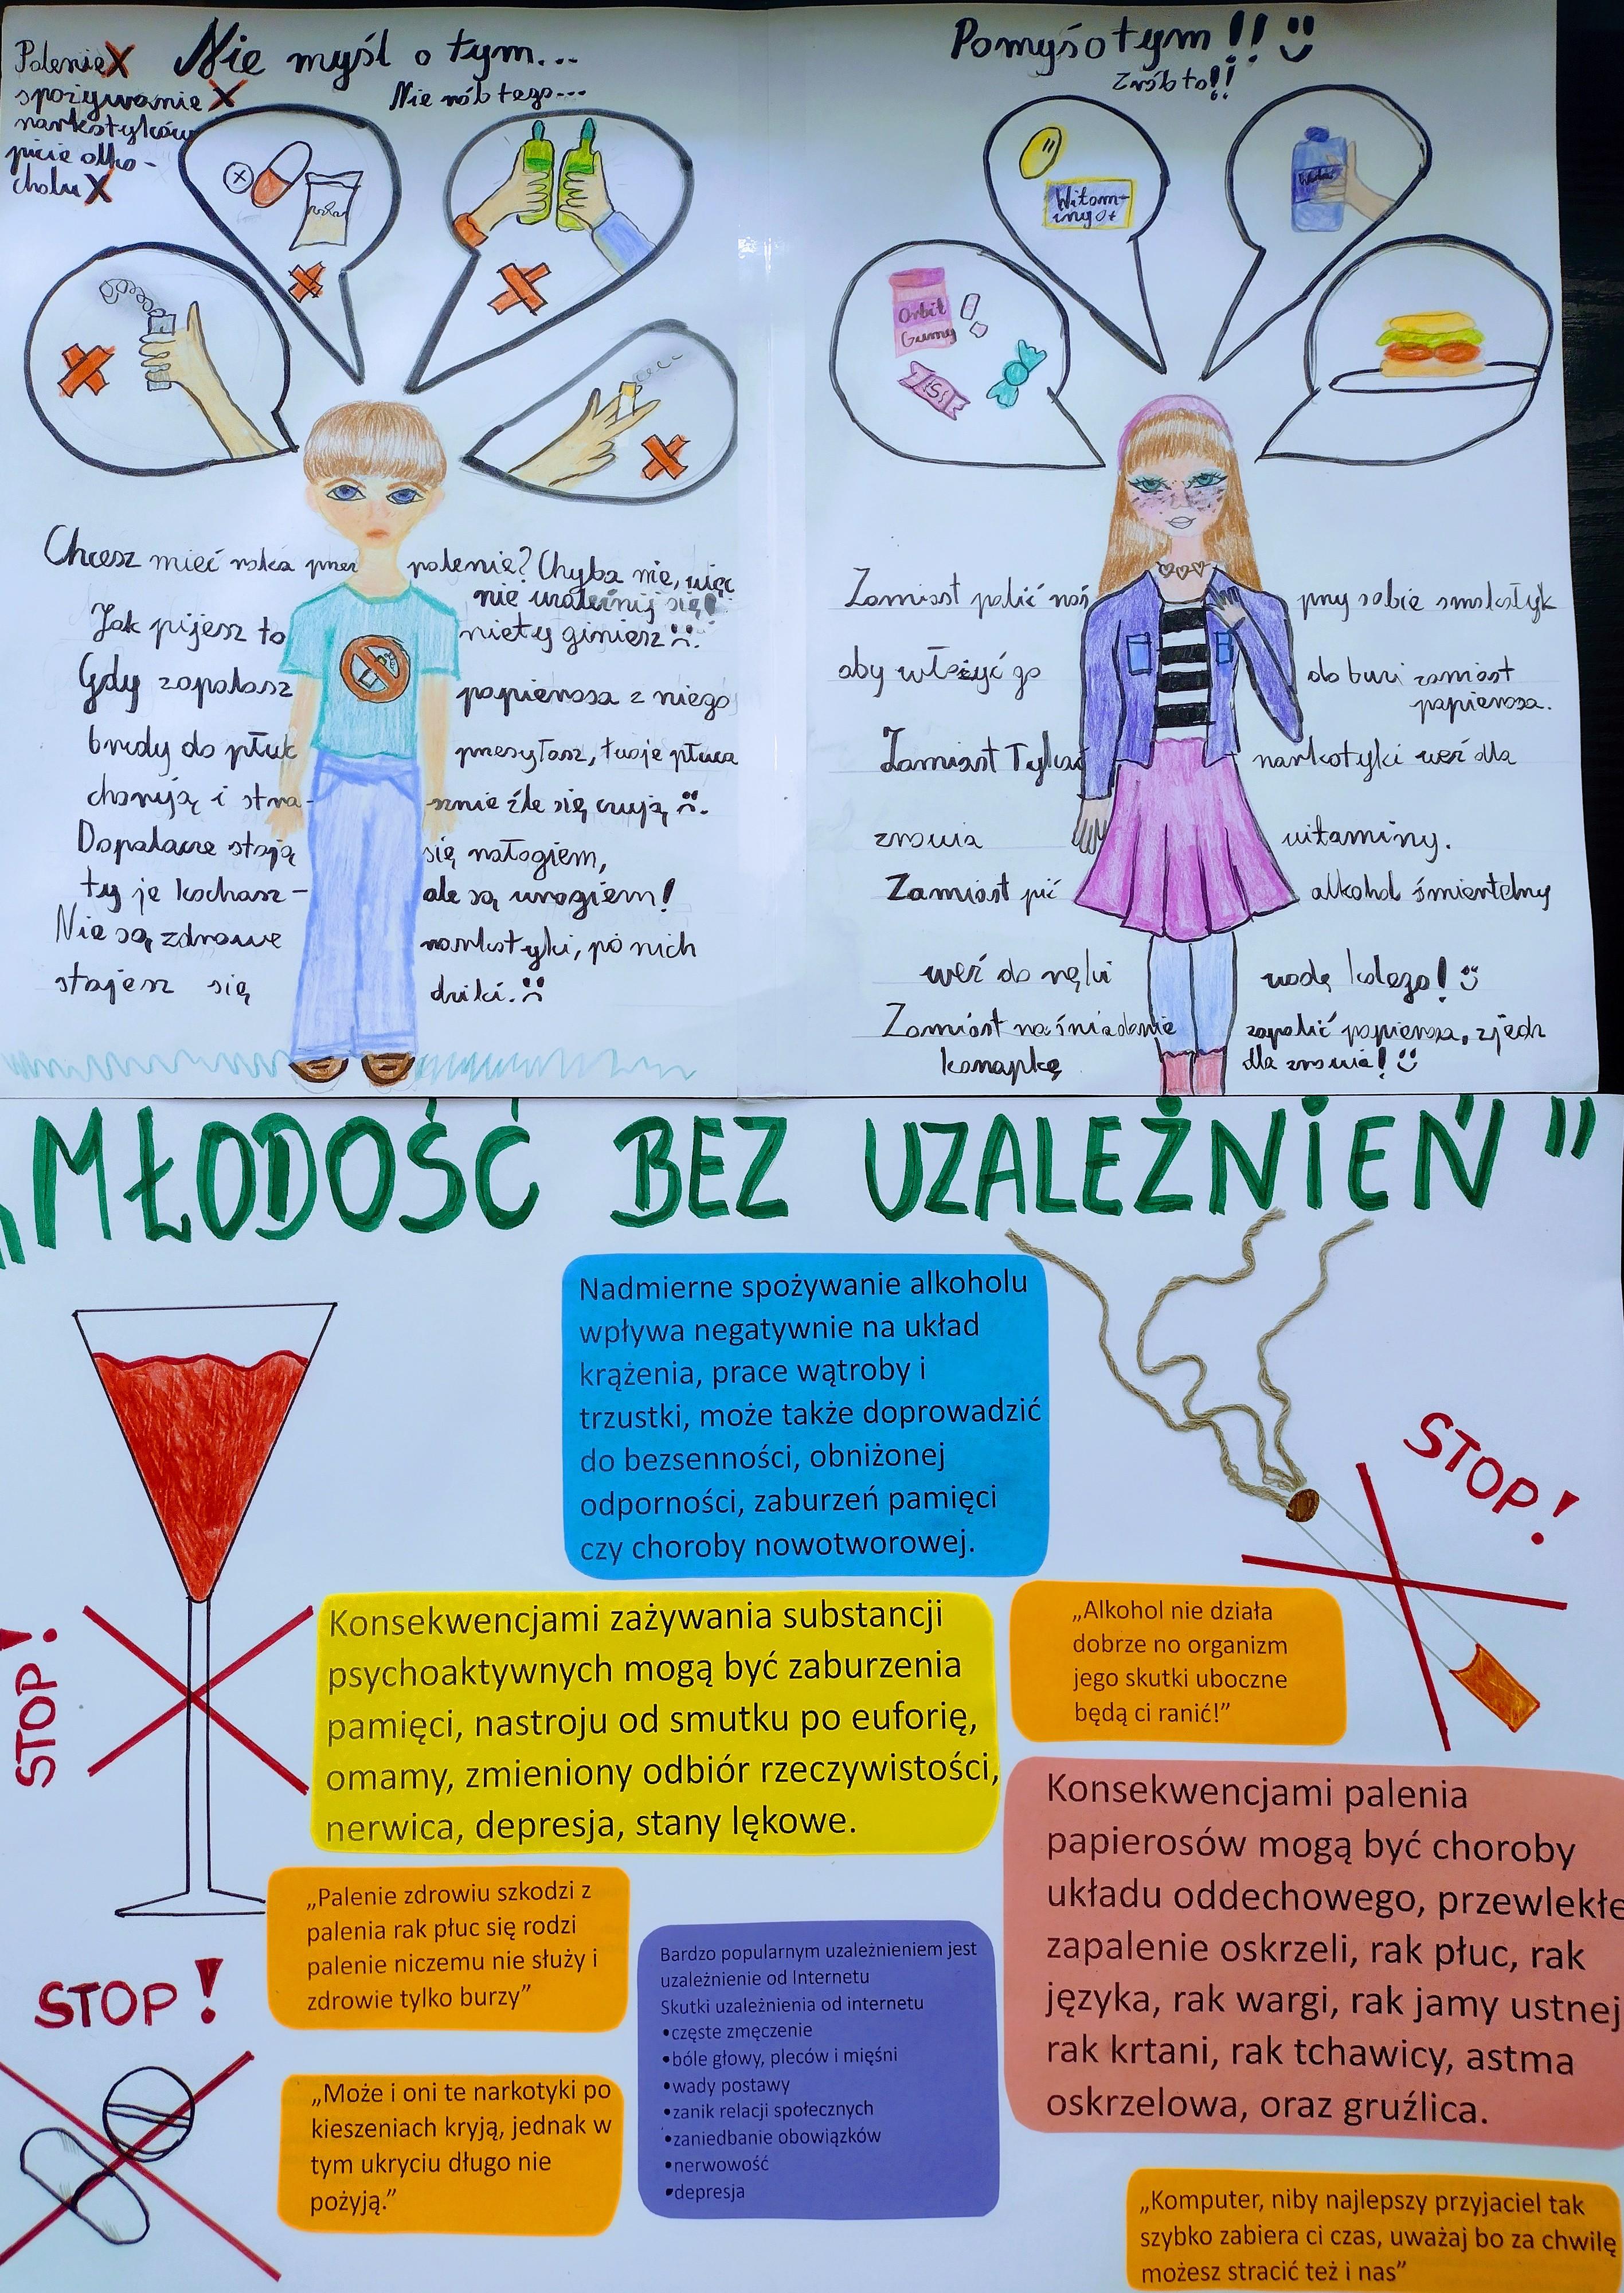 Palenie X
spożywanie X
narkotyków
picie alko-
cholu X
Nie myśl o tym...
Nie rób tego...
Chcesz mieć raka przez palenie? Chyba nie, więc
nie uzależnij się!
Jak pijesz to niety giniesz
Gdy zapalasz papierosa z niego
brudy do płuc przesyłasz, twoje płuca
chorują i stra- sznie źle się czują
Dopalacze stają się nałogiem,
ty je kochasz - ale są wrogiem!
Nie są zdrowe narkotyki, po nich
stajesz się dziki.
Pomyś o tym!!
Zrób to!!
Witam-
iny
Woda
Orbit
Gumy
Zamiast palić noś przy sobie smakołyk
aby włożyć go do buzi zamiast
papierosa.
Zamiast łykać narkotyki weź dla
zrowia witaminy.
Zamiast pić alkohol śmiertelny
weź do ręki wodę kolego!
Zamiast na śniadanie zapalić papierosa, zjedz
kanapkę dla zrowia!
„MŁODOŚĆ BEZ UZALEŻNIEŃ"
Nadmierne spożywanie alkoholu
wpływa negatywnie na układ
krążenia, prace wątroby i
trzustki, może także doprowadzić
do bezsenności, obniżonej
odporności, zaburzeń pamięci
czy choroby nowotworowej.
STOP!
STOP!
Konsekwencjami zażywania substancji
psychoaktywnych mogą być zaburzenia
pamięci, nastroju od smutku po euforię,
omamy, zmieniony odbiór rzeczywistości,
nerwica, depresja, stany lękowe.
„Alkohol nie działa
dobrze no organizm
jego skutki uboczne
będą ci ranić!”
Konsekwencjami palenia
papierosów mogą być choroby
układu oddechowego, przewlekłe
zapalenie oskrzeli, rak płuc, rak
języka, rak wargi, rak jamy ustnej
rak krtani, rak tchawicy, astma
oskrzelowa, oraz gruźlica.
„Palenie zdrowiu szkodzi z
palenia rak płuc się rodzi
palenie niczemu nie służy i
zdrowie tylko burzy”
STOP!
Bardzo popularnym uzależnieniem jest
uzależnienie od Internetu
Skutki uzależnienia od internetu
•częste zmęczenie
•bóle głowy, pleców i mięśni
•wady postawy
•zanik relacji społecznych
•zaniedbanie obowiązków
•nerwowość
•depresja
„Może i oni te narkotyki po
kieszeniach kryją, jednak w
tym ukryciu długo nie
pożyją.”
„Komputer, niby najlepszy przyjaciel tak
szybko zabiera ci czas, uważaj bo za chwilę
możesz stracić też i nas”